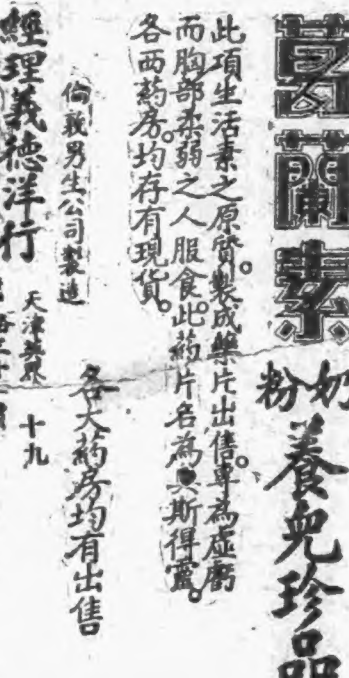 葛蘭素
奶粉
養兒珍品
此項生活素之原質。製成藥片出售。專為虛虧
而胸部柔弱之人服食。此藥片名為斯得靈。
各西藥房。均存有現貨。
各大藥房均有出售
倫敦男生公司製造
經理義德洋行
天津英界
十九